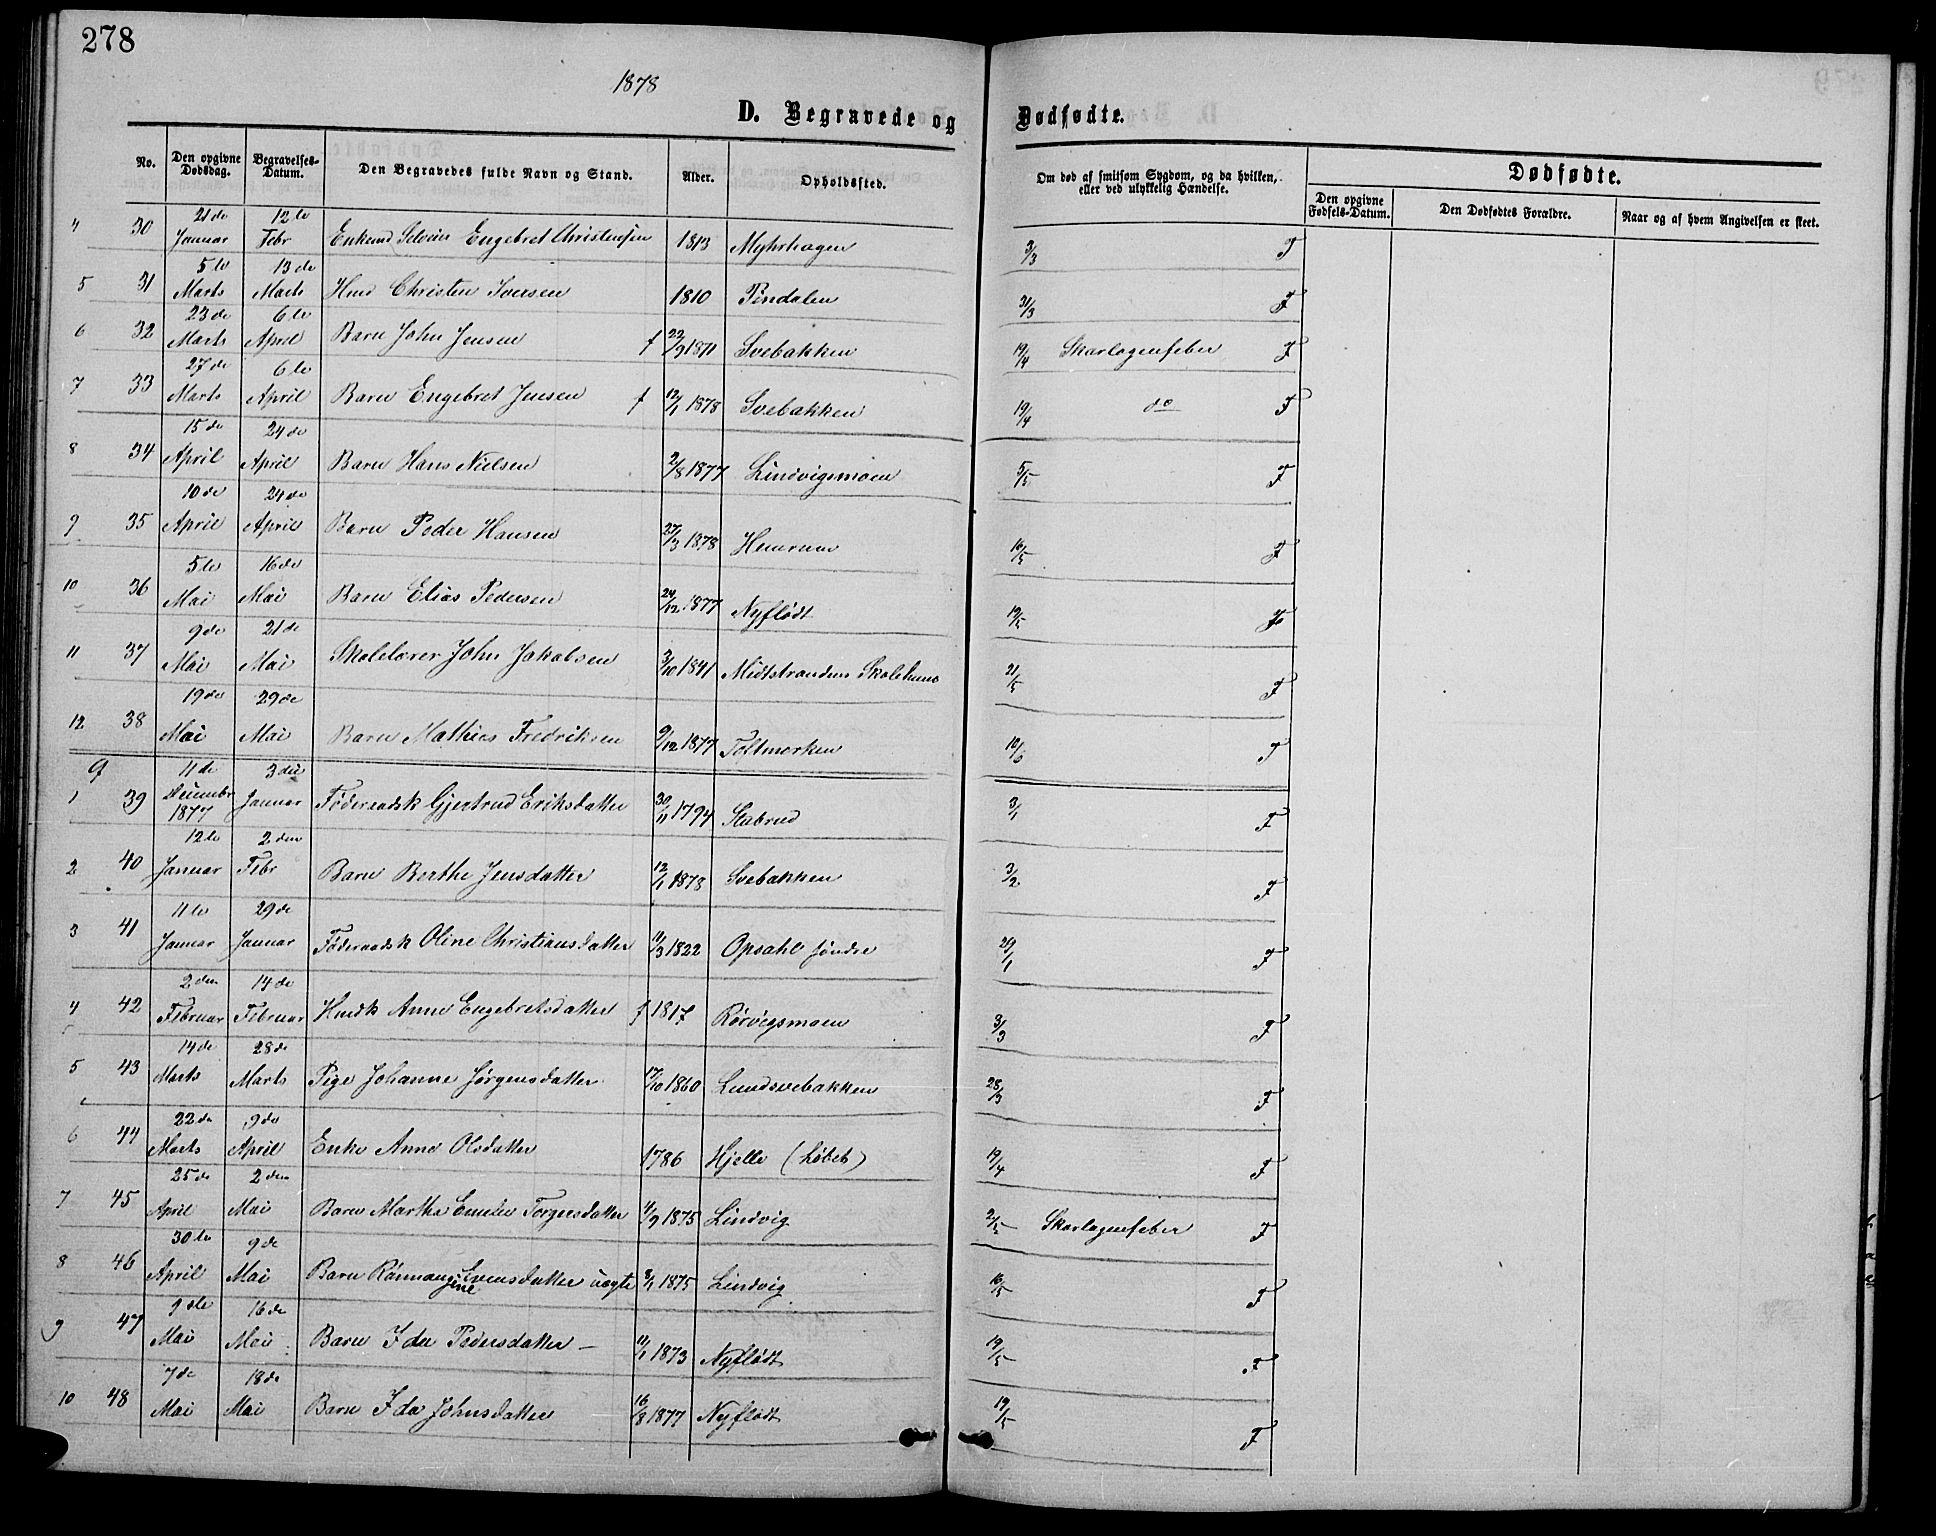 278
1878
D. Begravede og Dødfødte.
No. | Den opgivne Dødsdag. | Begravelses-Datum. | Den Begravedes fulde Navn og Stand. | Alder. | Opholdssted. | Om død af smitsom Sygdom, og da hvilken, eller ved ulykkelig Hændelse. | Dødfødte.
Den opgivne Fødsels-Datum. | Den Dødfødtes Forældre. | Naar og af hvem Angivelsen er skeet.
4 30 21de Januar 12te Febr Enkemd Engebret Christensen 1813 Myhrhagen 3/3 F
5 31 5te Marts 13de Marts Hmd Christen Iversen 1810 Pindalen 31/3 F
6 32 23de Marts 6te April Barn John Jensen f 22/9 1871 Svebakken 19/4 Skarlagenfeber F
7 33 27de Marts 6te April Barn Engebret Jensen f 12/1 1878 Svebakken 19/4 do F
8 34 15de April 24de April Barn Hans Nielsen 2/8 1877 Lindvigsmoen 5/5 F
9 35 10de April 24de April Barn Peder Hansen 27/3 1878 16/5 F
10 36 5te Mai 16de Mai Barn Elias Pedersen 24/12 1877 Nyflødt 19/5 F
11 37 9de Mai 21de Mai Skolelærer John Jakobsen 3/10 1841 Midtstrandens Skolehuus 21/5 F
12 38 19de Mai 29de Mai Barn Mathias Fredriksen 9/12 1877 Toltmorken 10/6 F
1 39 11de Decembr 1877 3die Januar Føderaadsk Gjertrud Eriksdatter 30/11 1794 Slabrud 3/1 F
2 40 12te Januar 2den Febr Barn Berthe Jensdatter 12/1 1878 Svebakken 3/2 F
3 41 11te Januar 29de Januar Føderaadsk Oline Christiansdatter 11/3 1822 Opsahl søndre 29/1 F
4 42 2den Februar 14de Februar Hmdk Anne Engebretsdatter f 1817 Rørvigsmoen 3/3 F
5 43 14de Marts 28de Marts Pige Johanne Jørgensdatter 17/10 1860 Lundsvebakken 28/3 F
6 44 22de Marts 9de April Enke Anne Olsdatter 1786 Hjelle (Løbet) 19/4 F
7 45 25de April 2den Mai Barn Martha Emelie Torgersdatter 4/9 1875 Lindvig 2/5 Skarlagenfeber F
8 46 30te April 9de Mai Barn Rønnaug Jine Svensdatter uægte 8/1 1875 Lindvig 16/5 F
9 47 9de Mai 16de Mai Barn Ida Pedersdatter – 11/1 1873 Nyflødt 19/5 F
10 48 7de Mai 18de Mai Barn Ida Johnsdatter 16/8 1877 Nyflødt 19/5 F